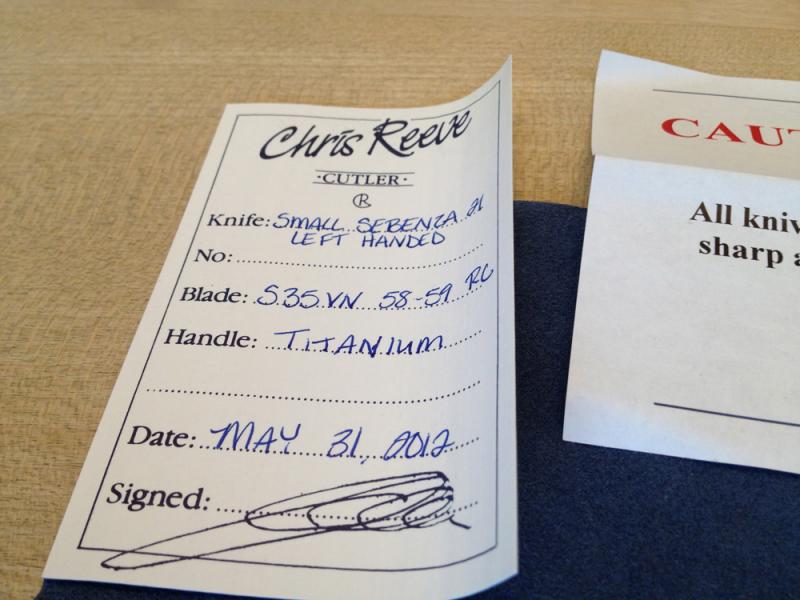 Chris Reeve
·CUTLER·
R
Knife: SMALL SEBENZA 21
LEFT HANDED
No:
Blade: S35VN 58-59 RC
Handle: TITANIUM
Date: MAY 31, 2012
Signed:
CAUT
All kniv
sharp a